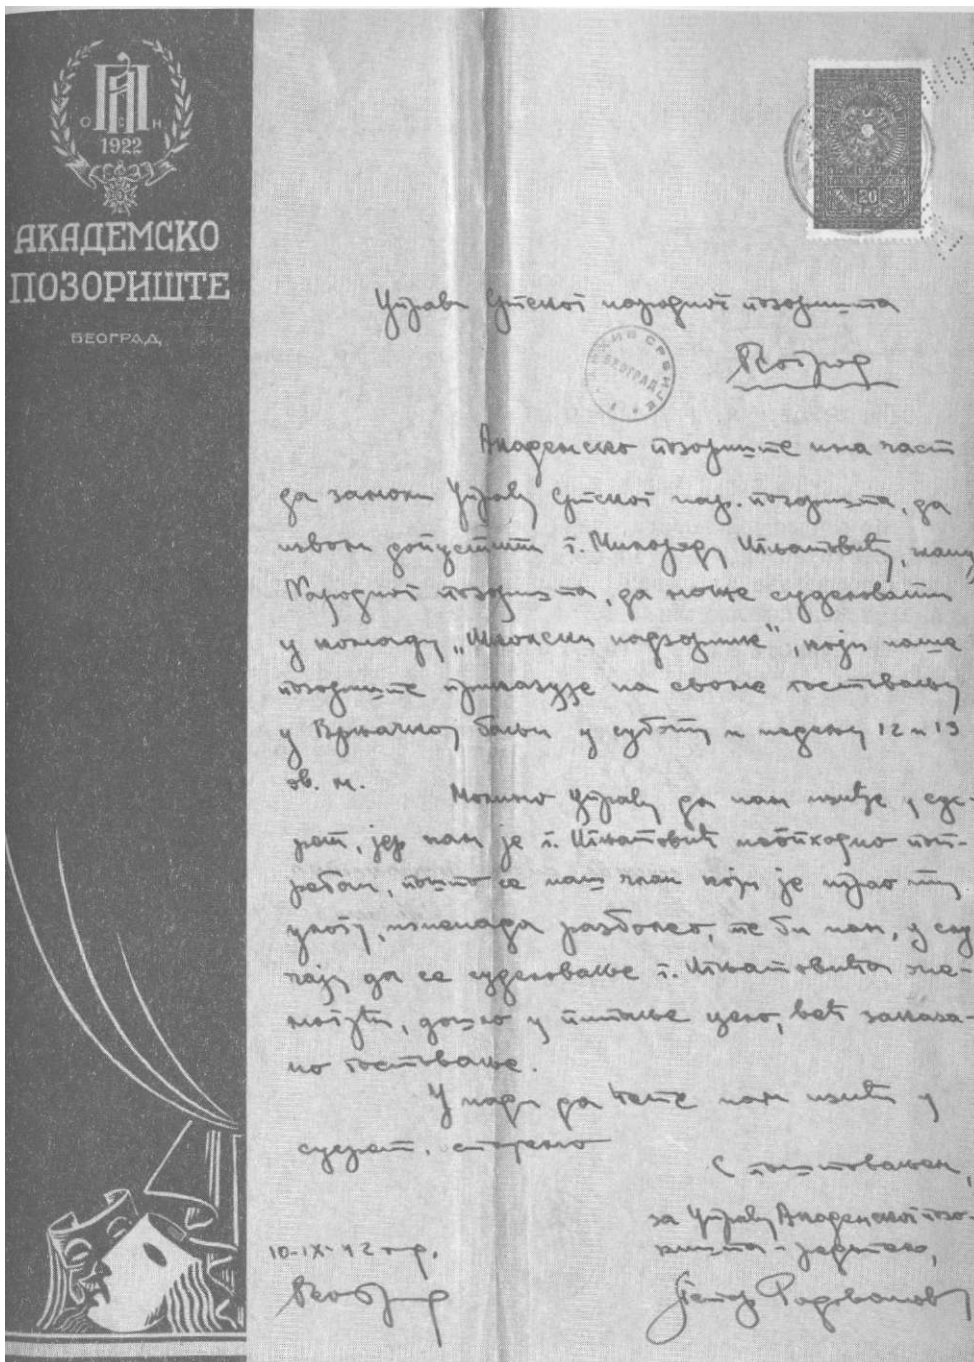 О С Н
1922
АКАДЕМСКО
ПОЗОРИШТЕ
БЕОГРАД
20
Управи Српског народног позоришта
АРХИВ СРБИЈЕ
БЕОГРАД
Београд
Академско позориште има част
да замоли Управу Српског нар. позоришта, да
изволи допустити г. Милораду Игњатовићу, члану
Народног позоришта, да може суделовати
у комаду „Школски надзорник“, који наше
позориште приказује на своме гостовању
у Врњачкој Бањи у суботу и недељу 12 и 13
ов. м.
Молимо Управу да нам изиђе у сус-
рет, јер нам је г. Игњатовић неопходно пот-
ребан, пошто се наш члан који је играо ту
улогу, изненада разболео, те би нам, у слу
чају да се суделовање г. Игњатовића оне-
могући, дошло у питање цело, већ заказа-
но гостовање.
У нади да ћете нам изићи у
сусрет,
С поштовањем,
за Управу Академског позо-
ришта - редитељ,
10-IX-42 год.
Београд
Петар Радовановић